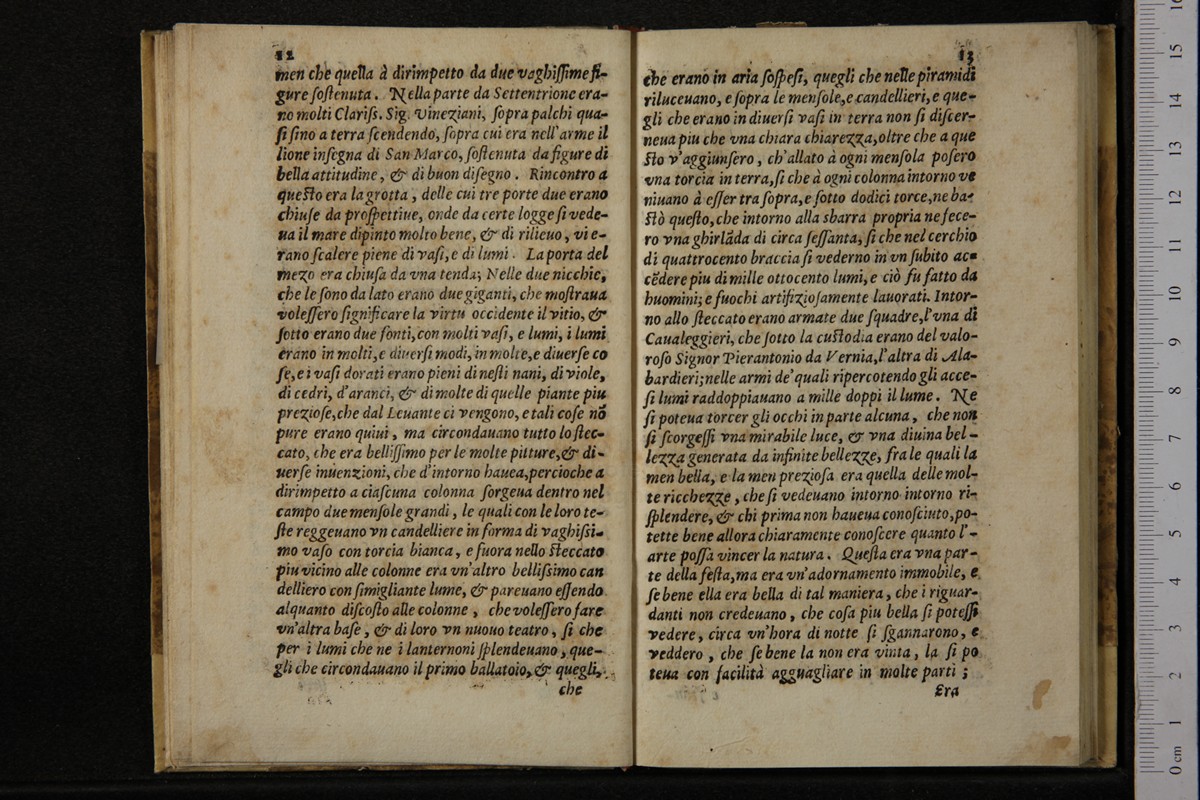 12
men che quella à dirimpetto da due vaghiſſime fi-
gure ſoſtenuta. Nella parte da Settentrione era-
no molti Clariſs. Sig. Vineziani, ſopra palchi qua-
ſi ſino a terra ſcendendo, ſopra cui era nell'arme il
lione inſegna di San Marco, ſoſtenuta da figure di
bella attitudine, & di buon diſegno. Rincontro a
queſto era la grotta, delle cui tre porte due erano
chiuſe da proſpettiue, onde da certe logge ſi vede-
ua il mare dipinto molto bene, & di rilieuo, vi e-
rano ſcalere piene di vaſi, e di lumi. La porta del
mezo era chiuſa da vna tenda; Nelle due nicchie,
che le ſono da lato erano due giganti, che moſtraua
voleſſero ſignificare la virtu occidente il vitio, &
ſotto erano due fonti, con molti vaſi, e lumi, i lumi
erano in molti, e diuerſi modi, in molte, e diuerſe co
ſe, e i vaſi dorati erano pieni di neſti nani, di viole,
di cedri, d'aranci, & di molte di quelle piante piu
prezioſe, che dal Leuante ci vengono, e tali coſe nō
pure erano quiui, ma circondauano tutto lo ſtec-
cato, che era belliſſimo per le molte pitture, & di-
uerſe inuenzioni, che d'intorno hauea, percioche a
dirimpetto a ciaſcuna colonna ſorgeua dentro nel
campo due menſole grandi, le quali con le loro te-
ſte reggeuano vn candelliere in forma di vaghiſsi-
mo vaſo con torcia bianca, e fuora nello ſteccato
piu vicino alle colonne era vn'altro belliſsimo can
delliero con ſimigliante lume, & pareuano eſſendo
alquanto diſcoſto alle colonne, che voleſſero fare
vn'altra baſe, & di loro vn nuouo teatro, ſi che
per i lumi che ne i lanternoni ſplendeuano, que-
gli che circondauano il primo ballatoio, & quegli,
che
13
che erano in aria ſoſpeſi, quegli che nelle piramidi
riluceuano, e ſopra le menſole, e candellieri, e que-
gli che erano in diuerſi vaſi in terra non ſi diſcer-
neua piu che vna chiara chiarezza, oltre che a que
ſto v'aggiunſero, ch'allato à ogni menſola poſero
vna torcia in terra, ſi che à ogni colonna intorno ve
niuano à eſſer tra ſopra, e ſotto dodici torce, ne ba-
ſtò queſto, che intorno alla sbarra propria ne fece-
ro vna ghirlāda di circa ſeſſanta, ſi che nel cerchio
di quattrocento braccia ſi vederno in vn ſubito ac-
cēdere piu di mille ottocento lumi, e ciò fu fatto da
huomini; e fuochi artifizioſamente lauorati. Intor-
no allo ſteccato erano armate due ſquadre, l'vna di
Caualeggieri, che ſotto la cuſtodia erano del valo-
roſo Signor Pierantonio da Vernia, l'altra di Ala-
bardieri; nelle armi de' quali ripercotendo gli acce-
ſi lumi raddoppiauano a mille doppi il lume. Ne
ſi poteua torcer gli occhi in parte alcuna, che non
ſi ſcorgeſſi vna mirabile luce, & vna diuina bel-
lezza generata da infinite bellezze, fra le quali la
men bella, e la men prezioſa era quella delle mol-
te ricchezze, che ſi vedeuano intorno intorno ri-
ſplendere, & chi prima non haueua conoſciuto, po-
tette bene allora chiaramente conoſcere quanto l'-
arte poſſa vincer la natura. Queſta era vna par-
te della feſta, ma era vn'adornamento immobile, e
ſe bene ella era bella di tal maniera, che i riguar-
danti non credeuano, che coſa piu bella ſi poteſſi
vedere, circa vn'hora di notte ſi ſgannarono, e
veddero, che ſe bene la non era vinta, la ſi po
teua con facilità agguagliare in molte parti;
Era